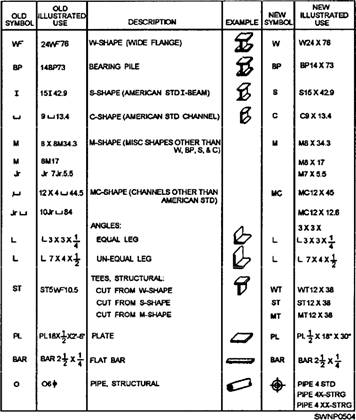 OLD SYMBOL OLD ILLUSTRATED USE DESCRIPTION EXAMPLE NEW SYMBOL NEW ILLUSTRATED USE
WF 24WF76 W-SHAPE (WIDE FLANGE) W W24 X 76
BP 14BP73 BEARING PILE BP BP14 X 73
I 15I42.9 S-SHAPE (AMERICAN STD I-BEAM) S S15 X 42.9
⊔ 9⊔13.4 C-SHAPE (AMERICAN STD CHANNEL) C C9 X 13.4
M 8 X 8M34.3 M-SHAPE (MISC SHAPES OTHER THAN M M8 X 34.3
W, BP, S, & C)
M 8M17 M8 X 17
Jr 7Jr5.5 M7 X 5.5
⊔ 12 X 4⊔44.5 MC-SHAPE (CHANNELS OTHER THAN MC MC12 X 45
AMERICAN STD)
Jr⊔ 10Jr⊔84 MC12 X 12.6
ANGLES: 3 X 3 X
L L 3 X 3 X 1/4 EQUAL LEG L L 3 X 3 X 1/4
L L 7 X 4 X 1/2 UN-EQUAL LEG L L 7 X 4 X 1/2
TEES, STRUCTURAL:
ST ST5WF10.5 CUT FROM W-SHAPE WT WT12 X 38
CUT FROM S-SHAPE ST ST12 X 38
CUT FROM M-SHAPE MT MT12 X 38
PL PL18X1/2X2'-6" PLATE PL PL 1/2 X 18" X 30"
BAR BAR 2 1/2 X 1/4 FLAT BAR BAR BAR 2 1/2 X 1/4
O O6ϕ PIPE, STRUCTURAL PIPE 4 STD
PIPE 4X-STRG
PIPE 4 XX-STRG
SWNP0504